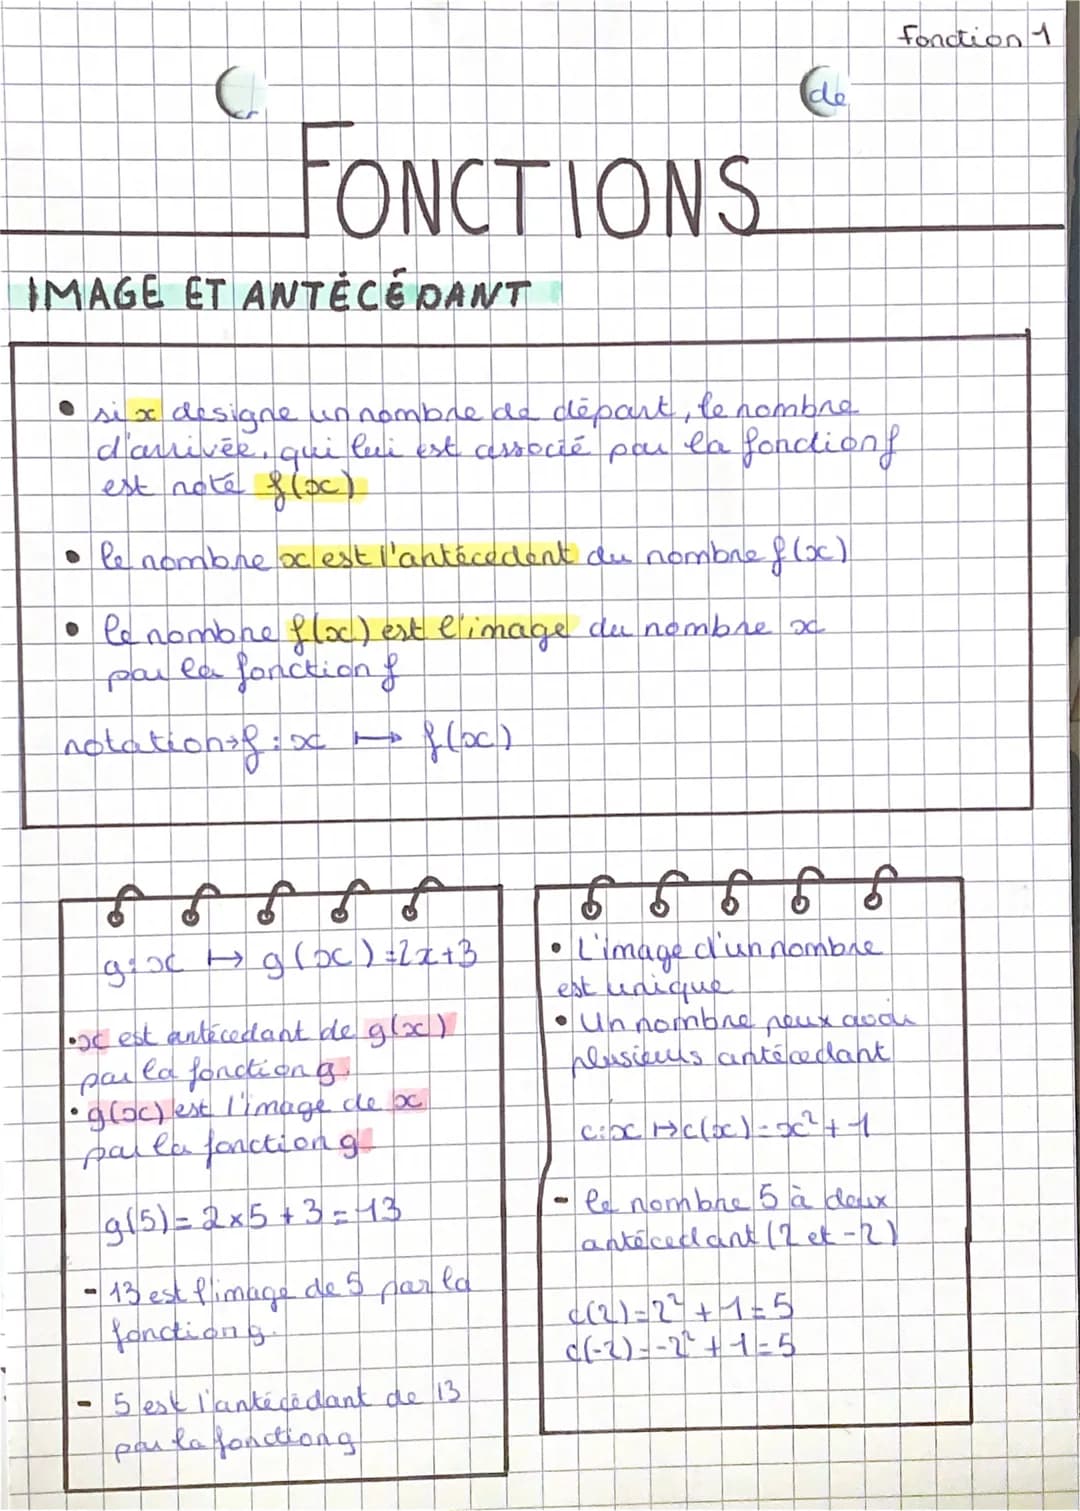 fonction 1
de
FONCTIONS
IMAGE ET ANTÉCÉDANT
• si x designe un nombre de départ, le nombre
d'arrivée, qui lui est associé par la fonction f
est noté f(x)
• le nombre x est l'antécédent du nombre f(x)
• le nombre f(x) est l'image du nombre x
par la fonction f
notation→f : x ↦ f(x)
g : x ↦ g(x) = 2x+3
• x est antécedant de g(x)
par la fonction g.
• g(x) est l'image de x
par la fonction g
g(5) = 2×5 + 3 = 13
- 13 est l'image de 5 par la
fonction g.
- 5 est l'antécédant de 13
par la fonction g
• L'image d'un nombre
est unique
• Un nombre peux avoir
plusieurs antécedant
c : x ↦ c(x) = x² + 1
- le nombre 5 à deux
antécedant (2 et -2)
c(2) = 2² + 1 = 5
c(-2) = -2² + 1 = 5